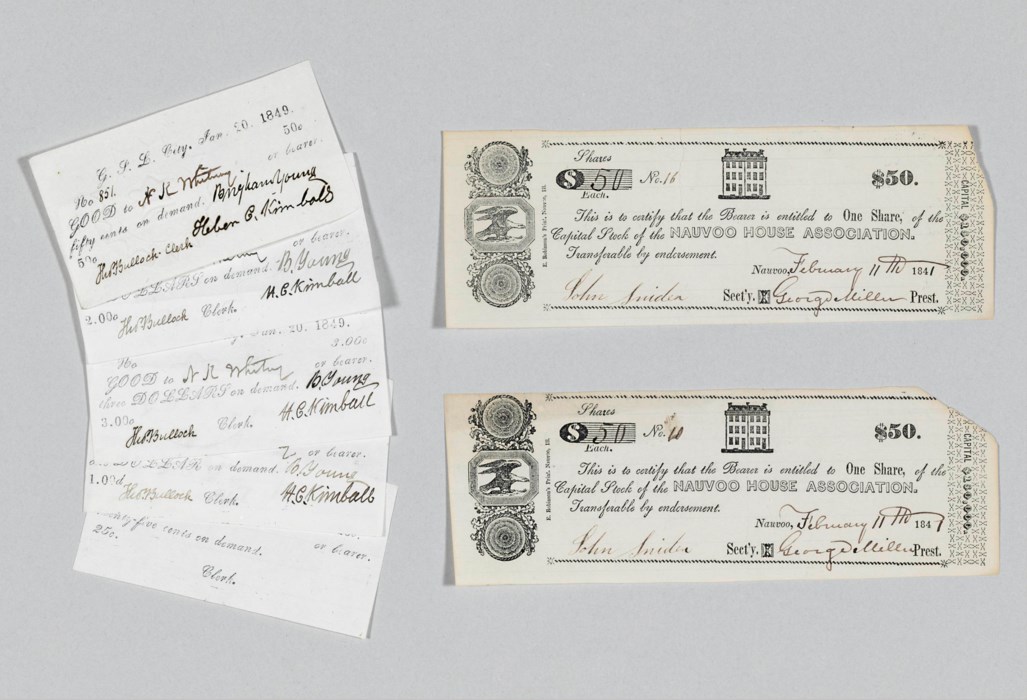 G. S. L. City, Jan. 20. 1849.
No 851. 50c
GOOD to N K Whitney or bearer.
fifty cents on demand. Brigham Young
50c Heber C. Kimball
Thos Bullock - Clerk
or bearer.
DOLLARS on demand. B. Young
H. C. Kimball
2.00c Thos Bullock Clerk.
Jan. 20. 1849.
No 3.00c
GOOD to N K Whitney or bearer.
three DOLLARS on demand. B. Young
3.00c H. C. Kimball
Thos Bullock Clerk.
or bearer.
DOLLAR on demand. B. Young
1.00d H. C. Kimball
Thos Bullock Clerk.
twenty-five cents on demand. or bearer.
25c.
Clerk.
Shares
$ 50 No. 16 $50.
Each.
This is to certify that the Bearer is entitled to One Share, of the
Capital Stock of the NAUVOO HOUSE ASSOCIATION.
Transferable by endorsement.
Nauvoo, February 11th 1841
John Snider Sect'y. George Miller Prest.
E. Robinson's Print, Nauvoo, Ill.
CAPITAL
Shares
$ 50 No. 10 $50.
Each.
This is to certify that the Bearer is entitled to One Share, of the
Capital Stock of the NAUVOO HOUSE ASSOCIATION.
Transferable by endorsement.
Nauvoo, February 11th 1841
John Snider Sect'y. George Miller Prest.
E. Robinson's Print, Nauvoo, Ill.
CAPITAL